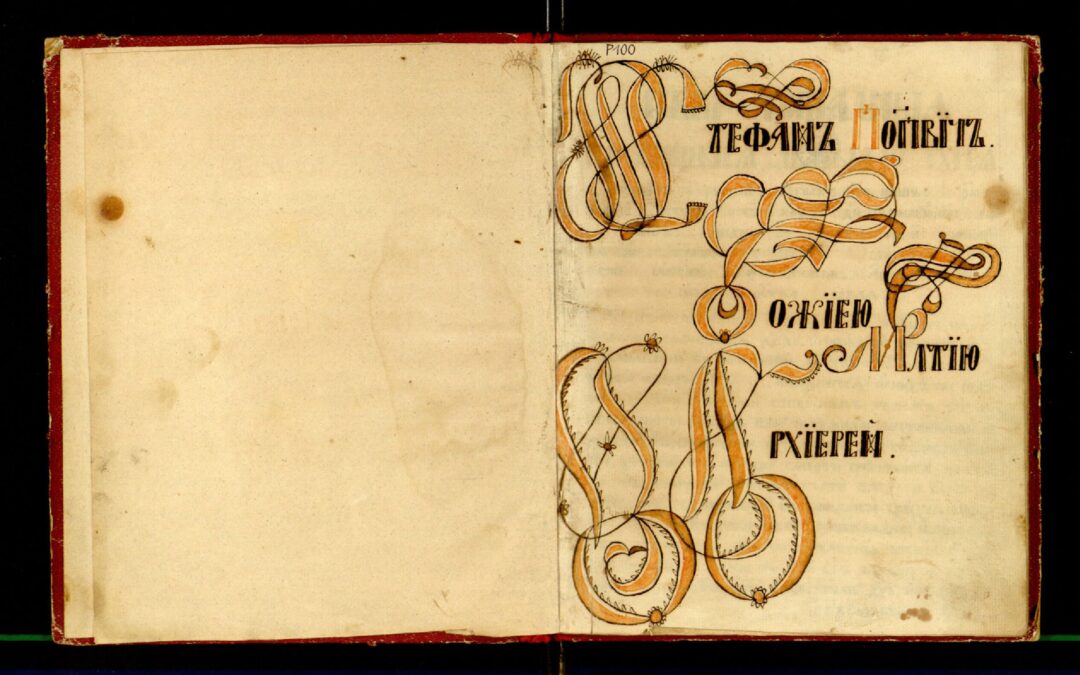 P.100
СТЕФАНЪ ПОП҃ВЇЧЪ.
БОЖЇЕЮ
МЛТЇЮ
АРХЇЕРЕЙ.